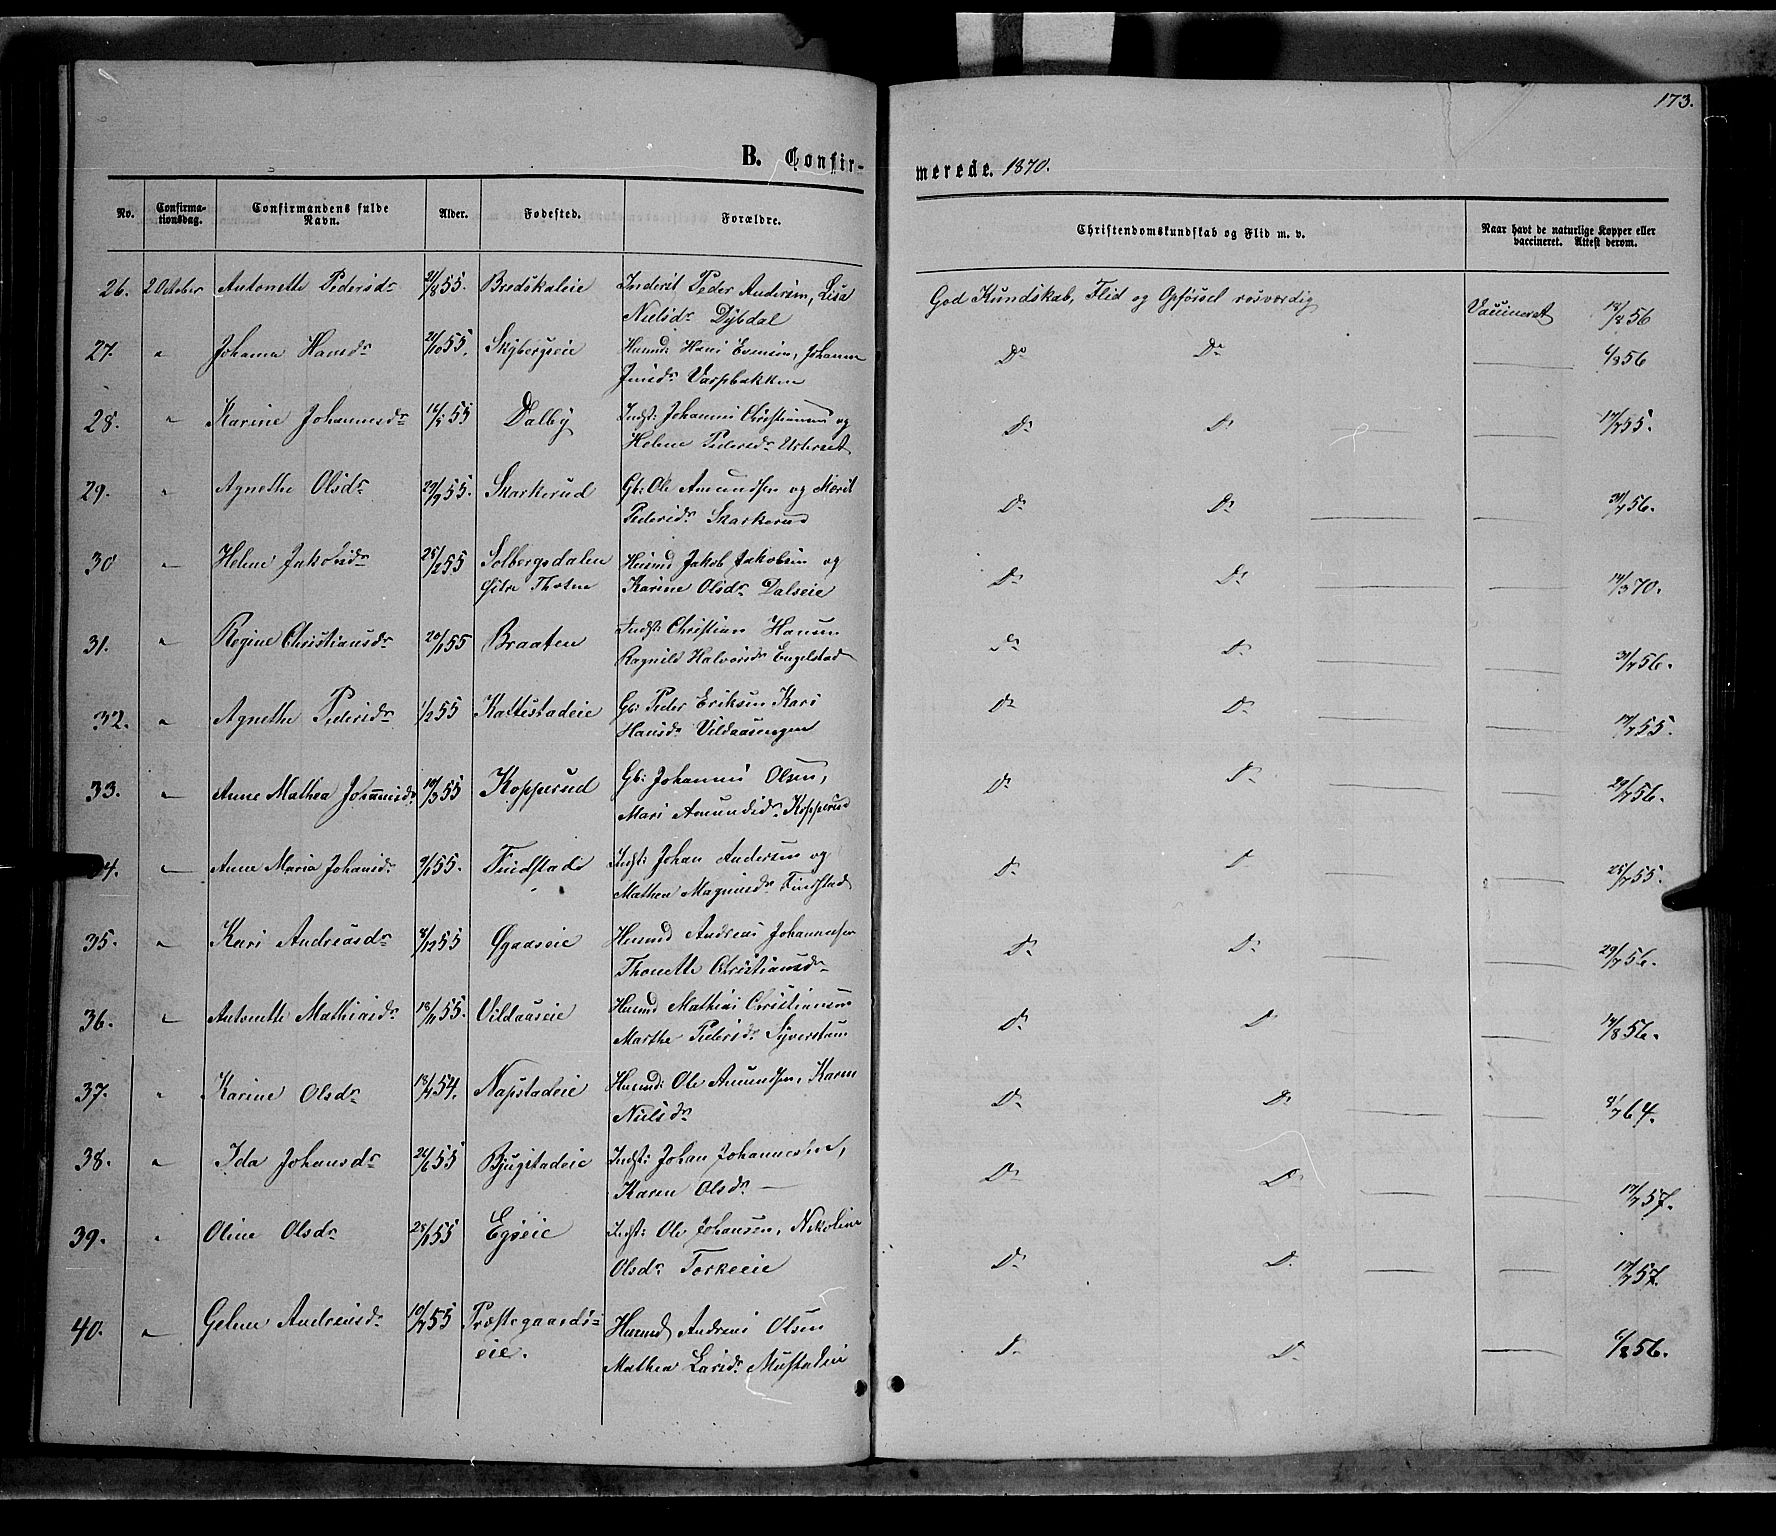 173.
B. Confir-
merede. 1870.
No.
Confirma-
tionsdag.
Confirmandens fulde
Navn.
Alder.
Fødested.
Forældre.
Christendomskundskab og Flid m. v.
Naar havt de naturlige Kopper eller
vaccineret. Attest derom.
26. 2 October Antonette Pedersdr 31/8 55. Bredskaleie Inderst Peder Andersen, Lisa
Nielsdr Dybdal God Kundskab, Flid og Opførsel rosværdig Vaccineret 18/8 56
27. " Johanne Hansdr 21/10 55. Skybergseie Husmd Hans Evensen, Johanne
Jensdr Varpbakken Do Do 6/8 56
28. " Karine Johannesdr 14/5 55 Dalby Indst: Johannes Christiansen og
Helene Pedersdr Do Do 17/7 55.
29. " Agnethe Olsdr 29/9 55. Skarkerud Gb: Ole Amundsen og Marit
Pedersdr Skarkerud Do Do 31/7 56.
30 " Helene Jakobsdr 25/2 55 Solbergsdalen
Østre Thoten Husmd Jakob Jakobsen og
Karine Olsdr Dalseie Do Do 14/3 70.
31. " Regine Christiansdr 20/1 55 Braaten Indst: Christian Hansen
Ragnild Halvorsdr Engelstad Do Do 31/7 56.
32. " Agnethe Pedersdr 1/2 55 Kattestadeie Gb: Peder Eriksen Kari
Hansdr Vildaasengen Do Do 17/7 55.
33. " Anne Mathea Johannesdr 19/3 55 Kopperud Gb: Johannes Olsen,
Mari Amundsdr Kopperud Do Do 29/7 56.
34. " Anne Maria Johansdr 9/1 55. Findstad Indst: Johan Andersen og
Mathea Magnusdr Findstad Do D 25/7 55.
35. " Kari Andreasdr 8/12 55 Øgaaseie Husmd Andreas Johannesen
Thonette Christiansdr Do Do 29/7 56.
36. " Antonette Mathiasdr 18/11 55. Vildaaseie Husmd Mathias Christiansen
Marthe Pedersdr Syverstuen Do Do 14/8 56.
37. " Karine Olsdr 54. Napstadeie Husmd: Ole Amundsen, Karen
Nielsdr Do Do 64.
38. " Ida Johansdr 24/6 55 Bjugstadeie Indst: Johan Johannessen,
Karen Olsdr Do Do 17/7 57.
39. " Oline Olsdr 28/1 55 Egseie Indst: Ole Johansen, Nikoline
Olsdr Torkeeie Do Do 17/7 57
40. " Gelene Andreasdr 10/7 55 Præstegaards-
eie. Husmd Andreas Olsen
Mathea Larsdr Mustadeie Do Do 6/8 56.